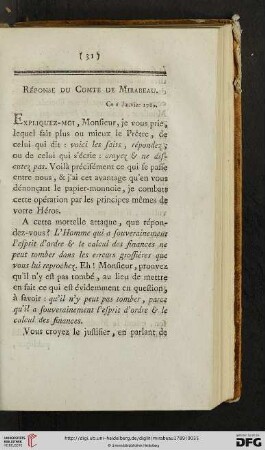 ( 31 )
RÉPONSE DU COMTE DE MIRABEAU.
Ce 2 Janvier
EXPLIQUEZ-MOI, Monsieur, je vous prie,
lequel fait plus ou mieux le Prêtre, de
celui qui dit : voici les faits, répondez ;
ou de celui qui s'écrie : croyez & ne dis-
cutez pas. Voilà précisément ce qui se passe
entre nous, & j'ai cet avantage qu'en vous
dénonçant le papier-monnoie, je combats
cette opération par les principes mêmes de
votre Héros.
A cette mortelle attaque, que répon-
dez-vous ? L'Homme qui a souverainement
l'esprit d'ordre & le calcul des finances ne
peut tomber dans les erreurs grossières que
vous lui reprochez. Eh ! Monsieur, prouvez
qu'il n'y est pas tombé, au lieu de mettre
en fait ce qui est évidemment en question,
à savoir : qu'il n'y peut pas tomber, parce
qu'il a souverainement l'esprit d'ordre & le
calcul des finances.
Vous croyez le justifier, en parlant de
UNIVERSITÄTS-
BIBLIOTHEK
HEIDELBERG
http://digi.ub.uni-heidelberg.de/diglit/mirabeau1789/0033
© Universitätsbibliothek Heidelberg
gefördert durch die
DFG